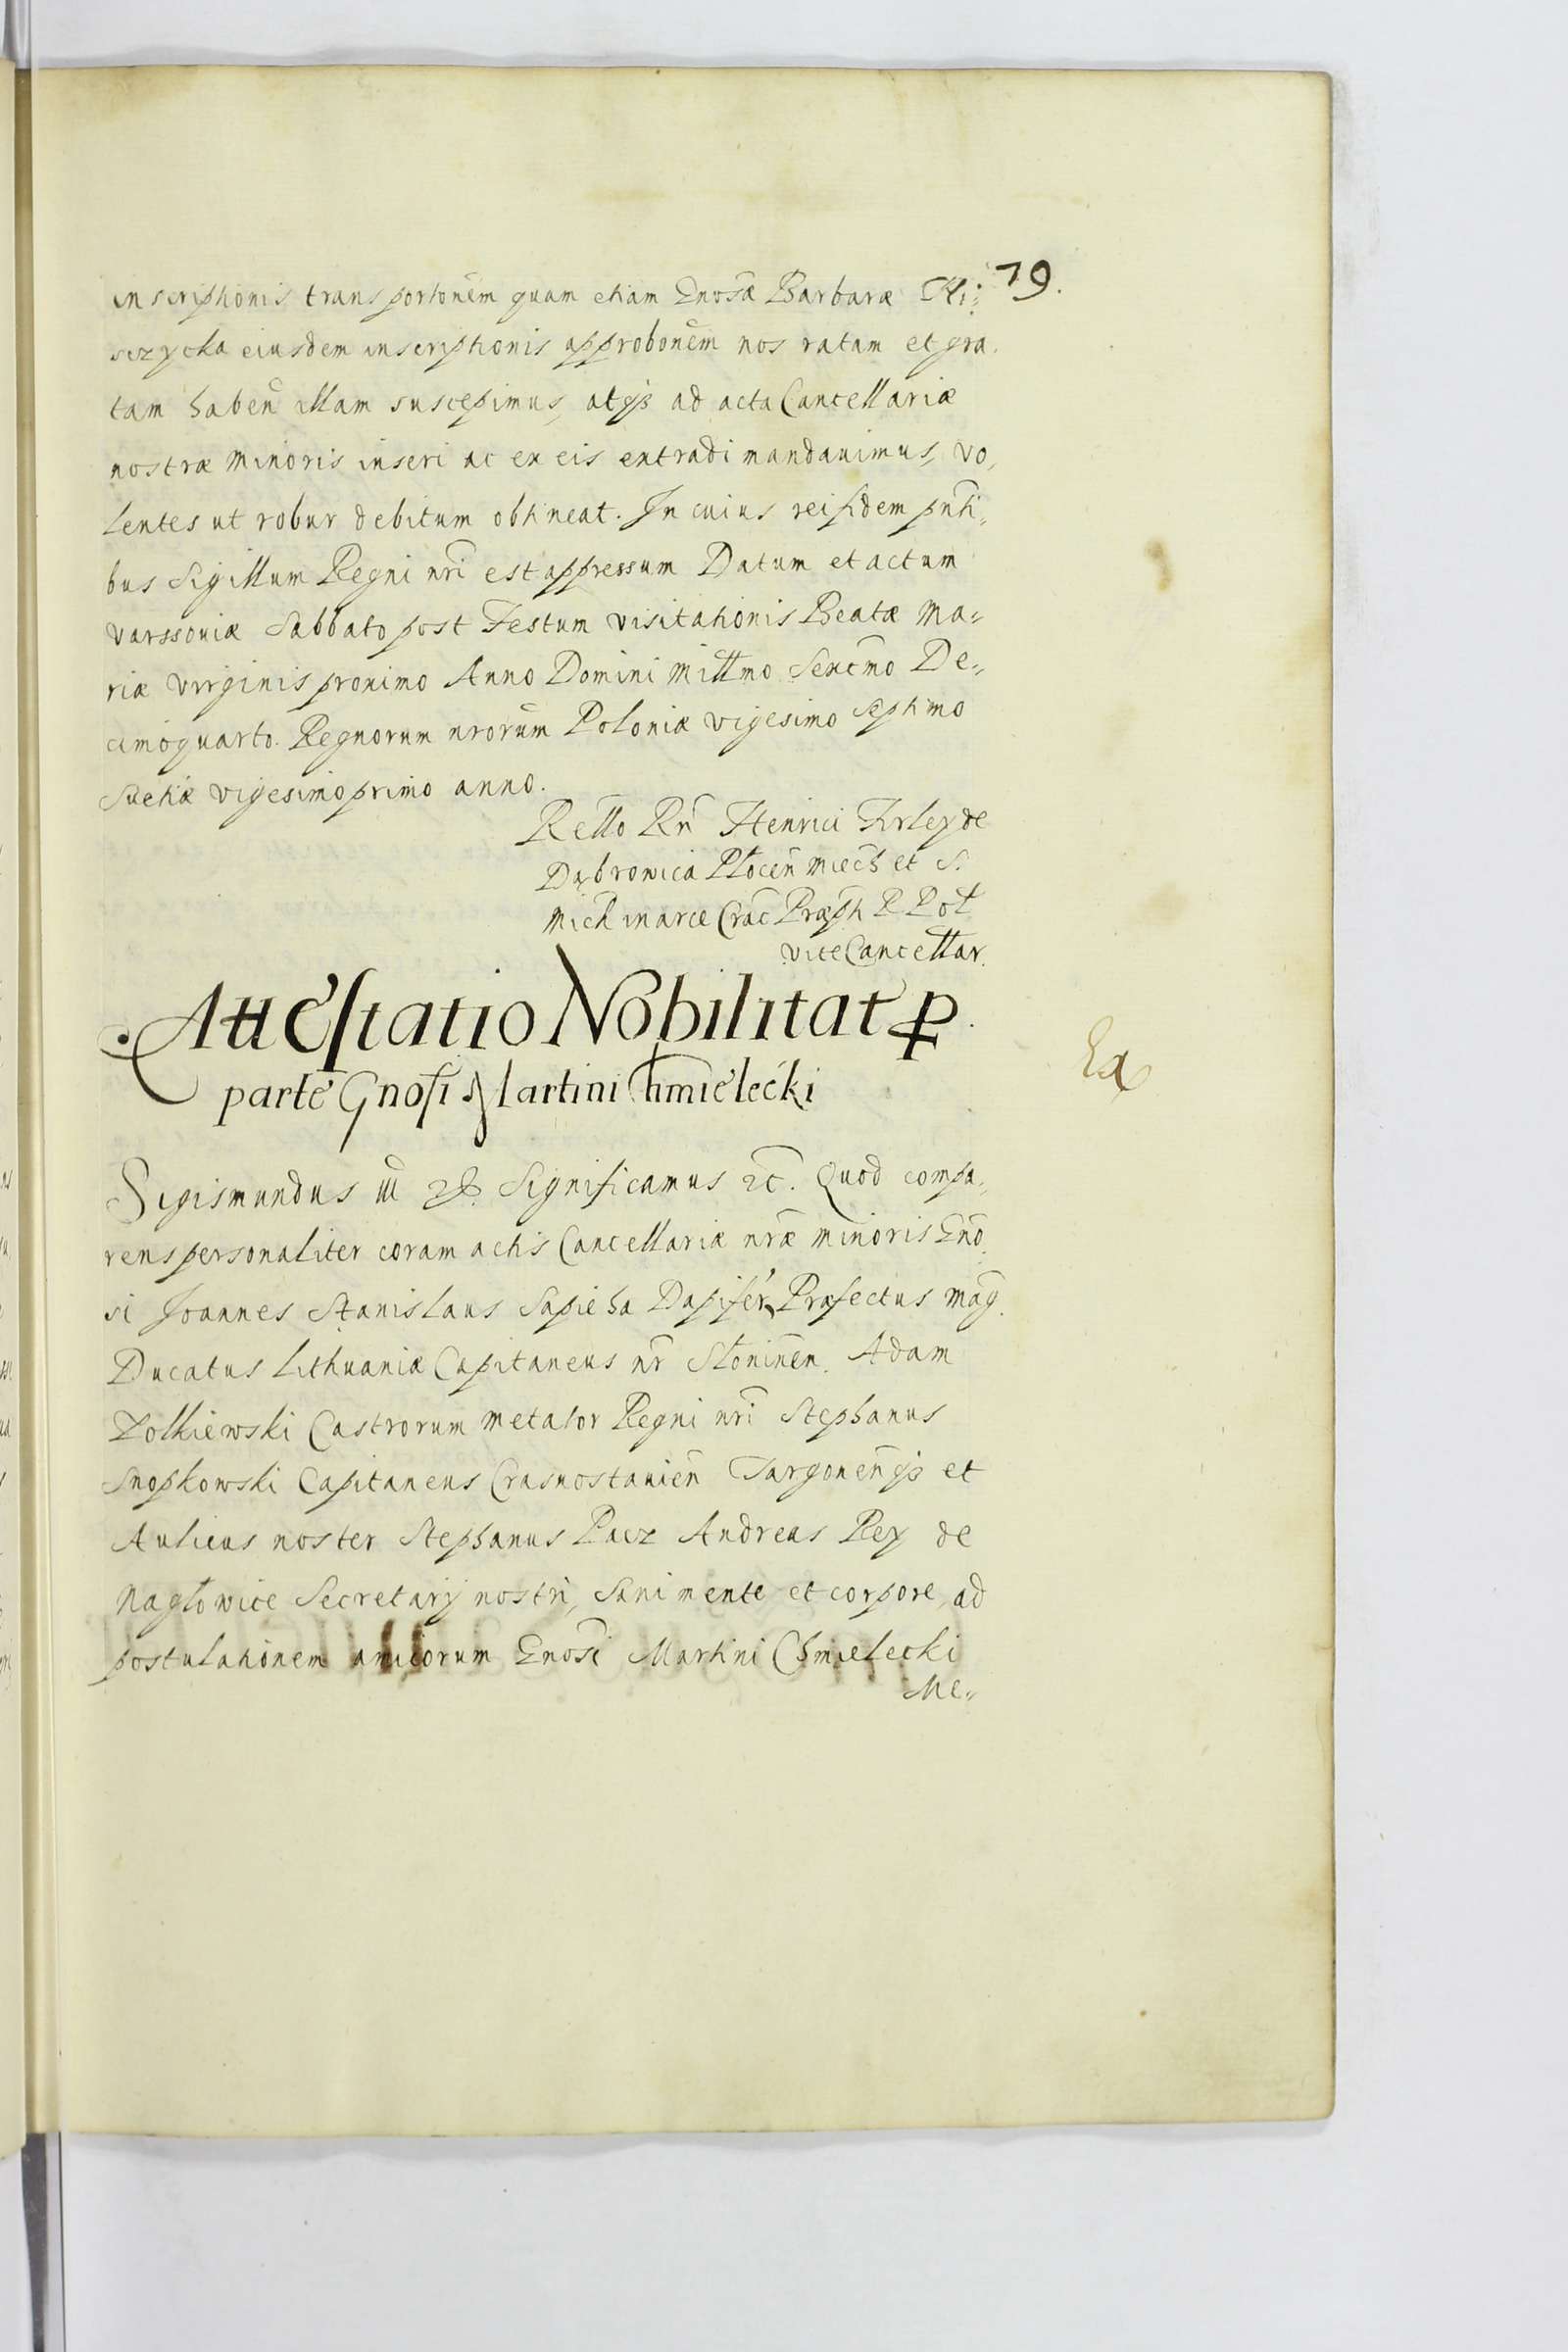 79.
inscriptionis transportonem quam etiam Gnosæ Barbaræ
sczycka eiusdem inscriptionis approbonem nos ratam et gra,
tam haben illam suscepimus, atq3 ad acta Cancellariæ
nostræ minoris inseri ac ex eis extradi mandauimus, vo,
lentes ut robur debitum obtineat. In cuius rei fidem pnti,,
bus Sigillum Regni nri est appressum Datum et actum
Varssoviæ Sabbato post Festum visitationis Beatæ Ma=
riæ virginis proximo Anno Domini Millmo Sexcmo De=
cimoquarto. Regnorum nrorum Poloniæ vigesimo septimo
Suetiæ vigesimoprimo anno.
Rello Rn Henrici Firley de
Dąbrowica Płocen Miech et S.
Mich in arce Crac Præpti R Pol
vice Cancellar.
Attestatio Nobilitat P
parte Gnosi Martini Chmielecki
Ex
Sigismundus III Significamus etc. Quod compa,,
rens personaliter coram actis Cancellariæ nræ minoris Gno
si Joannes Stanislaus Sapieha Dapifer, Præfectus Mag.
Ducatus Lithuaniæ Capitaneus nr Słoninen. Adam
Zolkiewski Castrorum metator Regni nri Stephanus
Snopkowski Capitaneus Crasnostauien Targonenq3 et
Aulicus noster Stephanus Pacz Andreas Rey de
Nagłowice Secretarij nostri, Sani mente et corpore, ad
postulationem amicorum Gnosi Martini Chmielecki
Me=